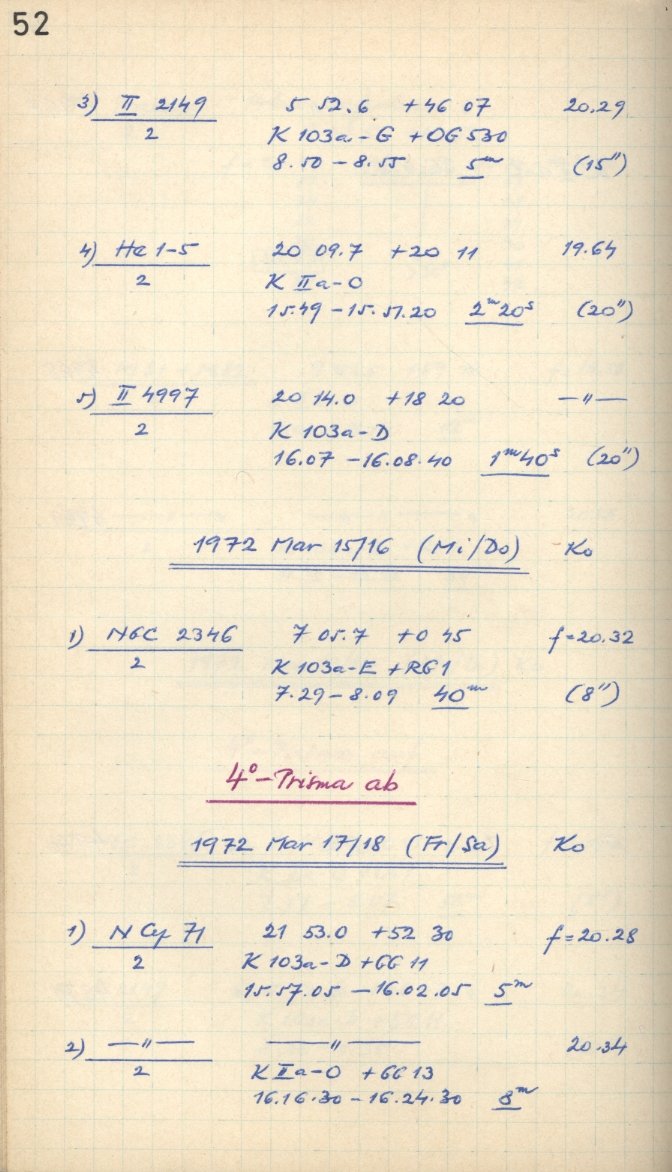 52
3) II 2149 5 52.6 +46 07 20.29
2 K 103a-G +OG 530
8.50 – 8.55 5m (15")
4) He 1-5 20 09.7 +20 11 19.64
2 K IIa-O
15.49 – 15.51.20 2m 20s (20")
5) II 4997 20 14.0 +18 20 —"—
2 K 103a-D
16.07 – 16.08.40 1m 40s (20")
1972 Mar 15/16 (Mi/Do) Ko
1) NGC 2346 7 05.7 +0 45 f=20.32
2 K 103a-E +RG1
7.29 – 8.09 40m (8")
4°-Prisma ab
1972 Mar 17/18 (Fr/Sa) Ko
1) N Cy 71 21 53.0 +52 30 f=20.28
2 K 103a-D +GG 11
15.57.05 – 16.02.05 5m
2) —"— —"— 20.34
2 K IIa-O +GG 13
16.16.30 – 16.24.30 8m